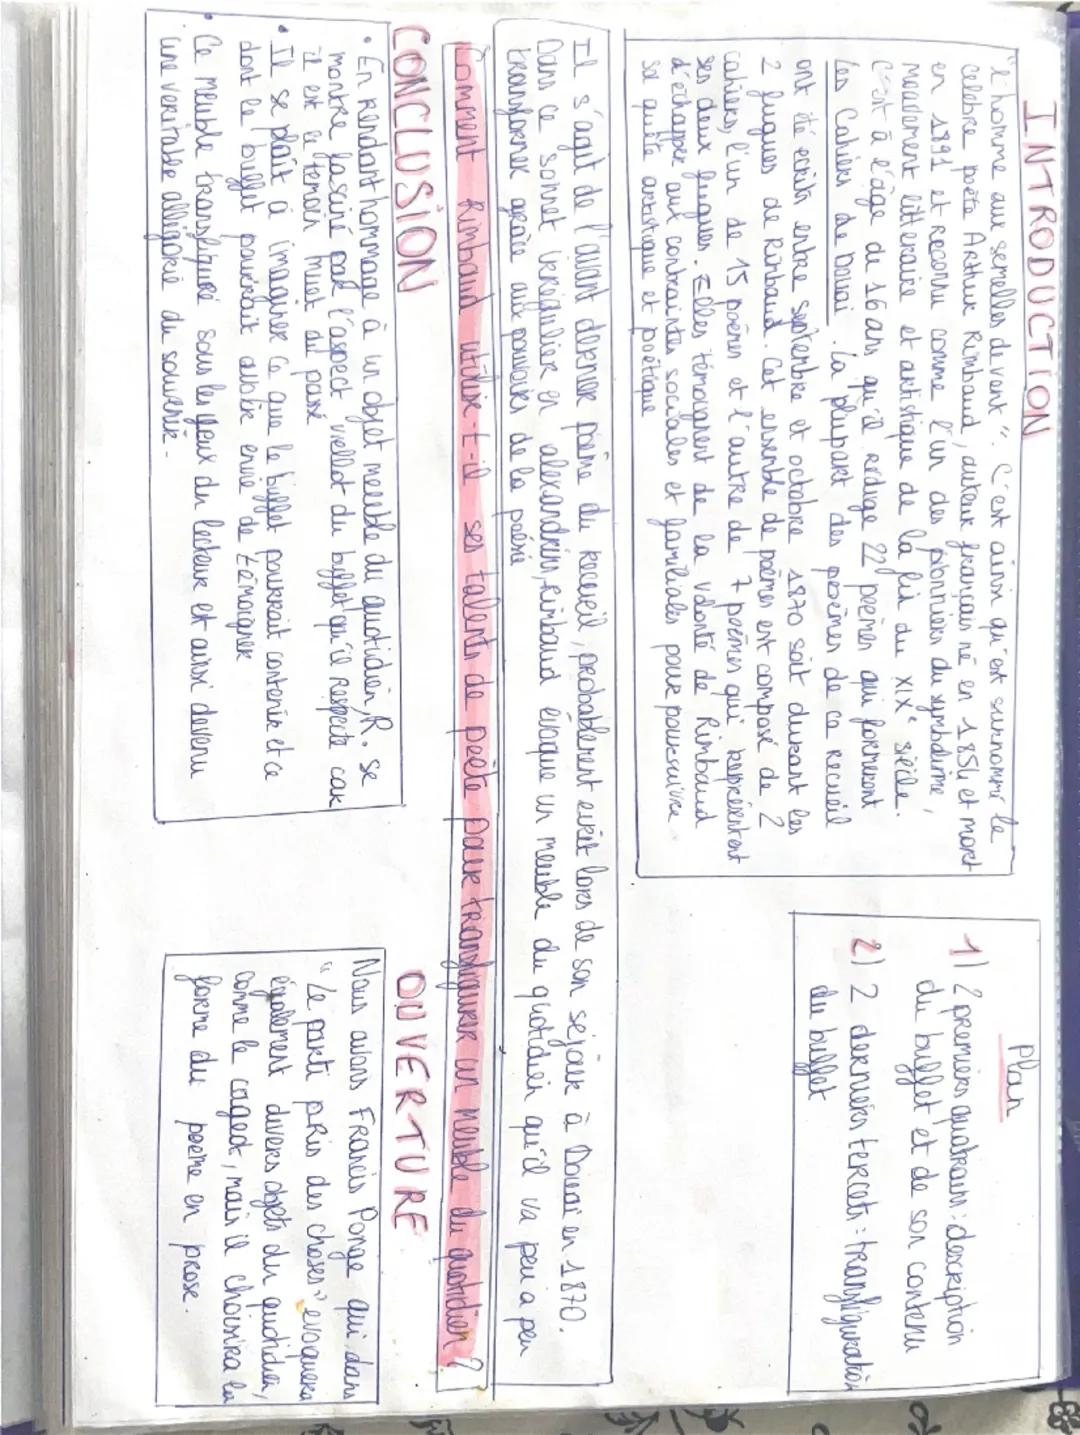 INTRODUCTION
"l'homme aux semelles de vent". C'est ainsi qu'est surnommé le
celebre poète Arthur Rimbaud, auteur français né en 1854 et mort
en 1891 et reconnu comme l'un des pionniers du symbolisme,
mouvement litteraire et artistique de la fin du XIXe siècle.
C'est à l'âge de 16 ans qu'il rédige 22 poèmes qui formeront
Les Cahiers de Douai. La plupart des poèmes de ca recueil
ont été ecrits entre septembre et octobre 1870 soit durant les
2 fugues de Rimbaud. Cet ensemble de poèmes est composé de 2
cahiers, l'un de 15 poèmes et l'autre de 7 poèmes qui représentent
ses deux fugues. Elles témoignent de la volonté de Rimbaud
d'échapper aux contraintes sociales et familiales pour poursuivre
sa quête artistique et poétique
Plan
1) 2 premiers quatrains : description
du buffet et de son contenu
2) 2 derniers tercets = transfiguration
du buffet
Il s'agit de l'avant dernier poème du recueil, probablement ecrit lors de son séjour à Douai en 1870.
Dans ce sonnet irrégulier en alexandrins, Rimbaud évoque un meuble du quotidien qu'il va peu a peu
transformer grâce aux pouvoirs de la poésie
Comment Rimbaud utilise-t-il ses talents de poète pour transfigurer un meuble du quotidien ?
CONCLUSION
• En rendant hommage à un objet meuble du quotidien, R. se
montre fasciné par l'aspect vieillot du buffet qu'il respecte car
il est le temoin muet du passé
• Il se plaît à imaginer ce que le buffet pourrait contenir et ce
dont le buffet pourrait avoir envie de témoigner
• Ce meuble transfiguré sous les yeux du lecteur et ainsi devenu
une veritable allégorie du souvenir.
OUVERTURE
Nous avons Francis Ponge qui, dans
"Le parti pris des choses", evoquera
également divers objets du quotidien,
comme le cageot, mais il choisira la
forme du poeme en prose.